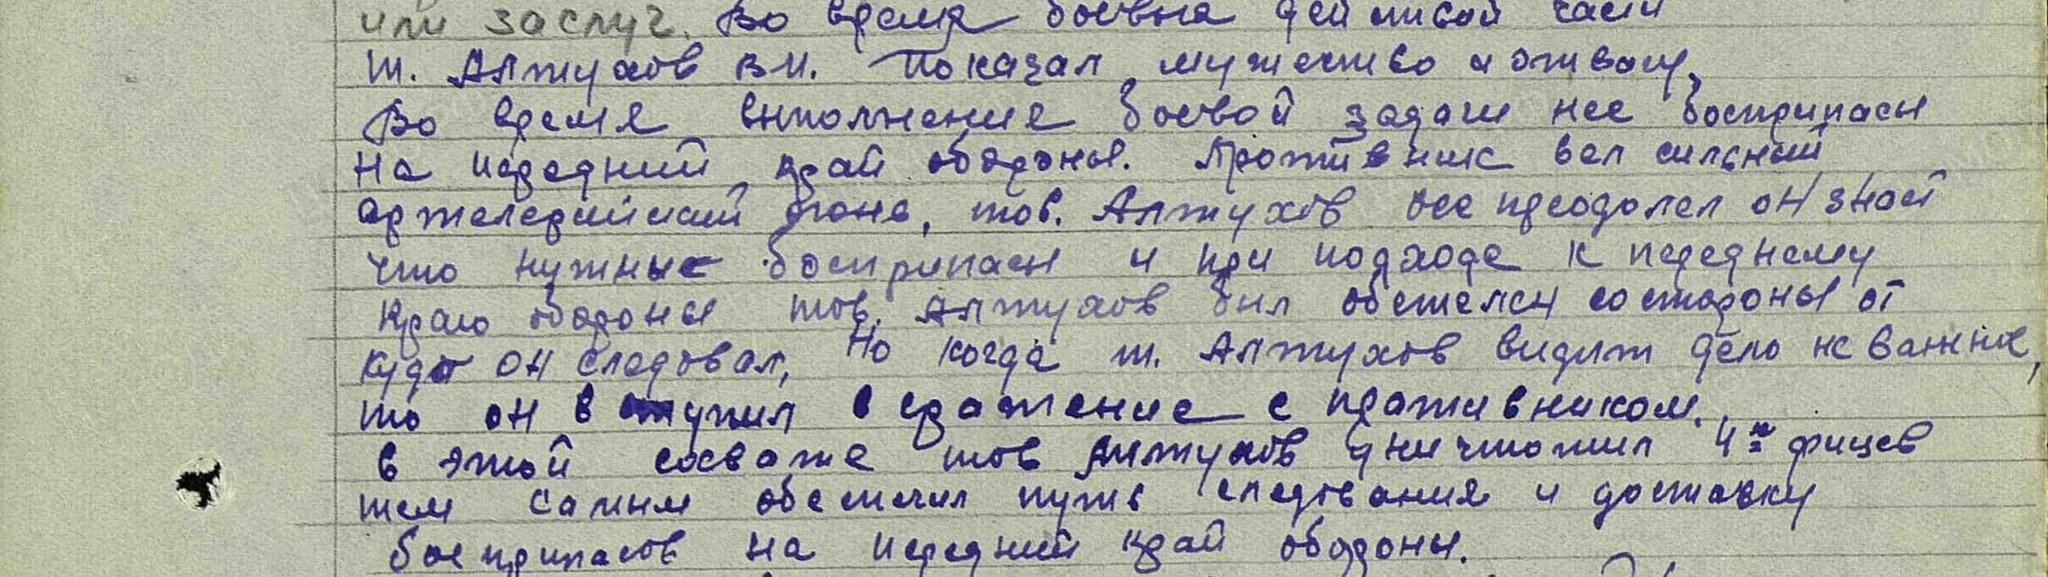 или заслуг. Во время боевых действий части
т. Алтухов В.И. Показал мужество и отвагу,
Во время выполнения боевой задачи нес боеприпасы
на передний край обороны. Противник вел сильный
артелерийский огонь, тов. Алтухов все преодолел он знает
что нужные боеприпасы и при подходе к переднему
краю обороны тов. Алтухов был обстелен со стороны от
куда он следовал, Но когда т. Алтухов видит дело не важное,
то он вступил в сражение с противником.
в этой схватке тов Алтухов уничтожил 4х фицев
тем самым обеспечил путь следования и доставку
боеприпасов на передний край обороны.